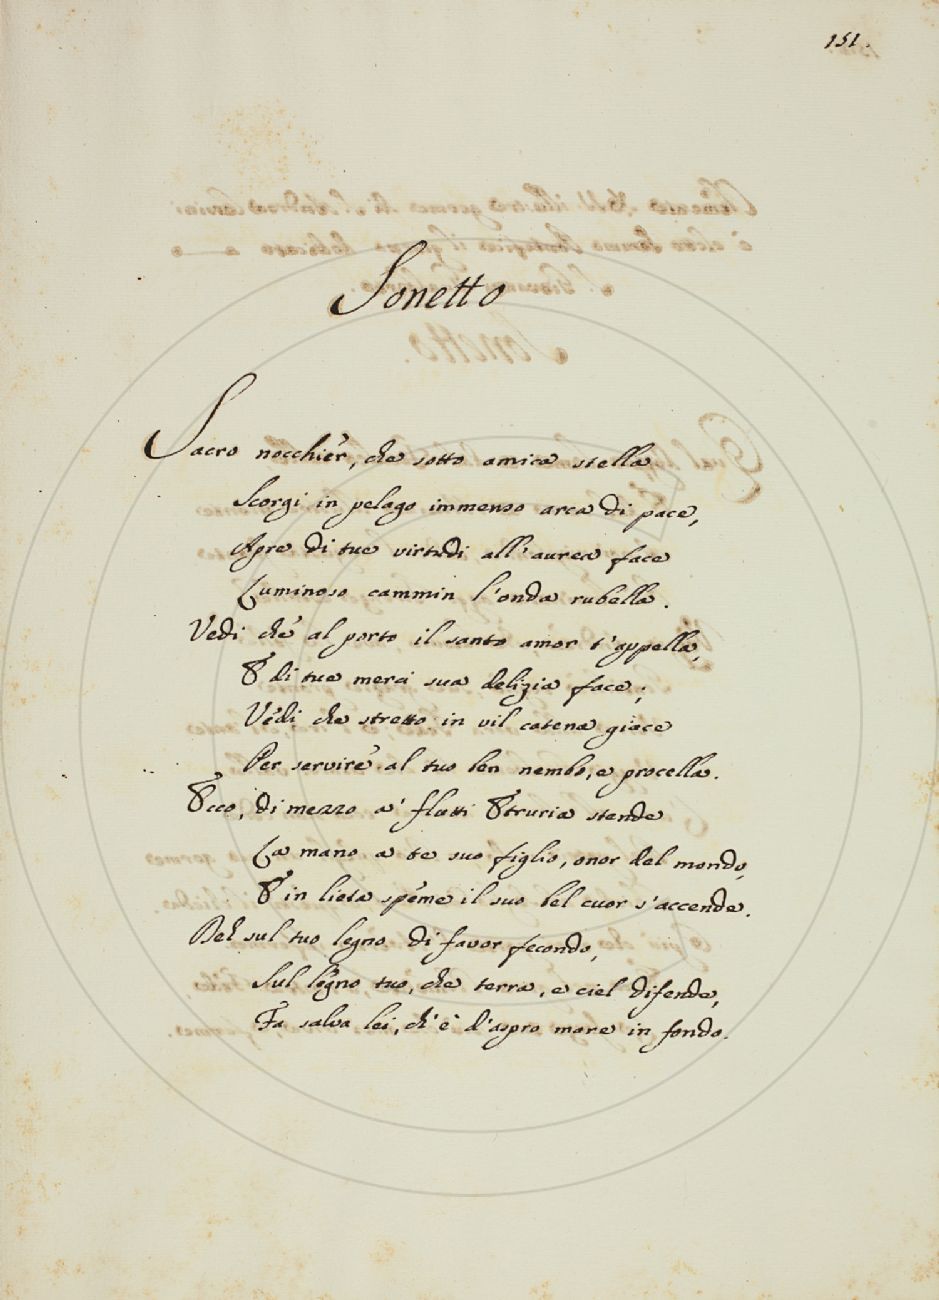 151.
Sonetto
Sacro nocchier, che sotto amica stella
Scorgi in pelago immenso arca di pace,
Apre di tue virtudi all'aurea face
Luminoso cammin l'onda rubella.
Vedi che al porto il santo amor t'appella,
E di tue merci sua delizia face;
Vedi che stretto in vil catena giace
Per servire al tuo ben nembo, e procella.
Ecco, di mezzo a' flutti Etruria stende
La mano a te suo figlio, onor del mondo,
E in lieta speme il suo bel cuor s'accende.
Deh sul tuo legno di favor fecondo,
Sul legno tuo, che terra, e ciel difende,
Fa salva lei, ch'è d'aspro mare in fondo.